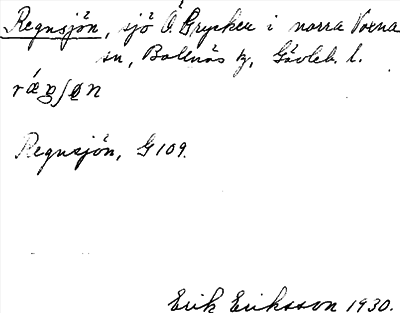 Regnsjön, sjö Ö. Brycken i norra Voxna
sn, Bollnäs tg, Gävleb. l.
Regnsjön, G109.
Erik Eriksson 1930.